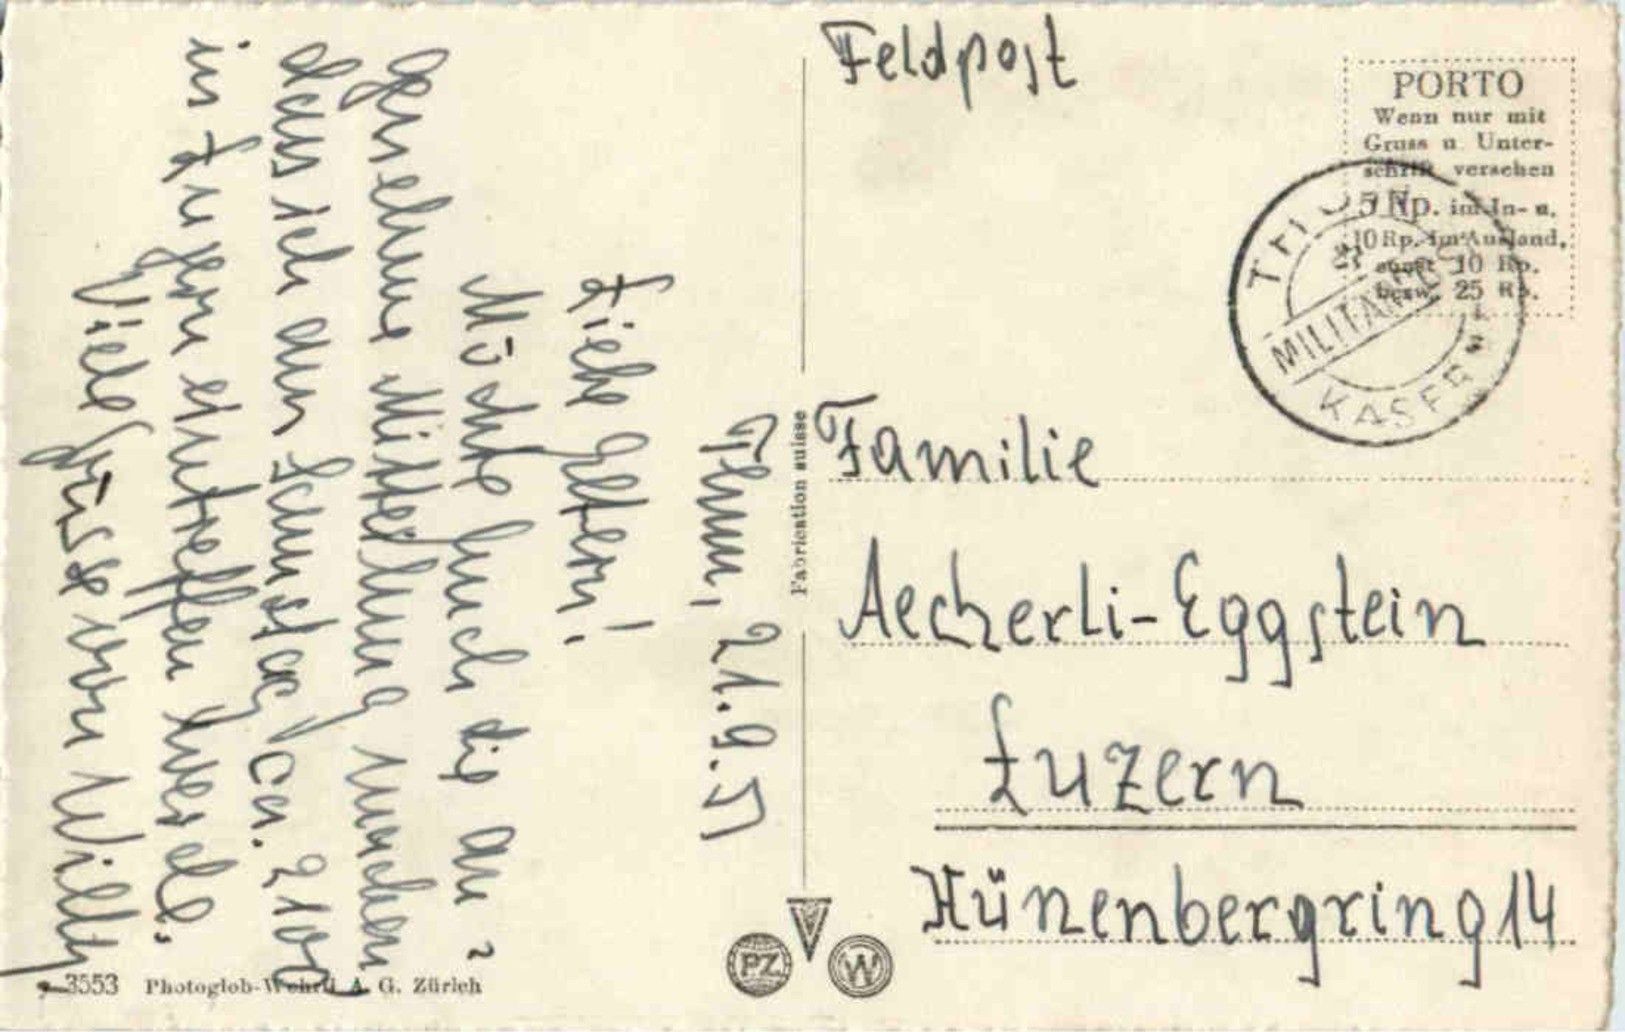 Thun, 21.9.51
Liebe Eltern!
Möchte Euch die an-
genehme Mitteilung machen
dass ich am Samstag ca. 2100
in Luzern eintreffen werde.
Viele Grüsse von Willy
3553 Photoglob-Wehrli A. G. Zürich
Fabrication suisse
PZ
W
Feldpost
PORTO
Wenn nur mit
Gruss u. Unter-
schrift versehen
5 Rp. im In- u.
10 Rp. im Ausland,
sonst 10 Rp.
bezw. 25 Rp.
THUN
KASERNE
Familie
Aecherli-Eggstein
Luzern
Hünenbergring 14